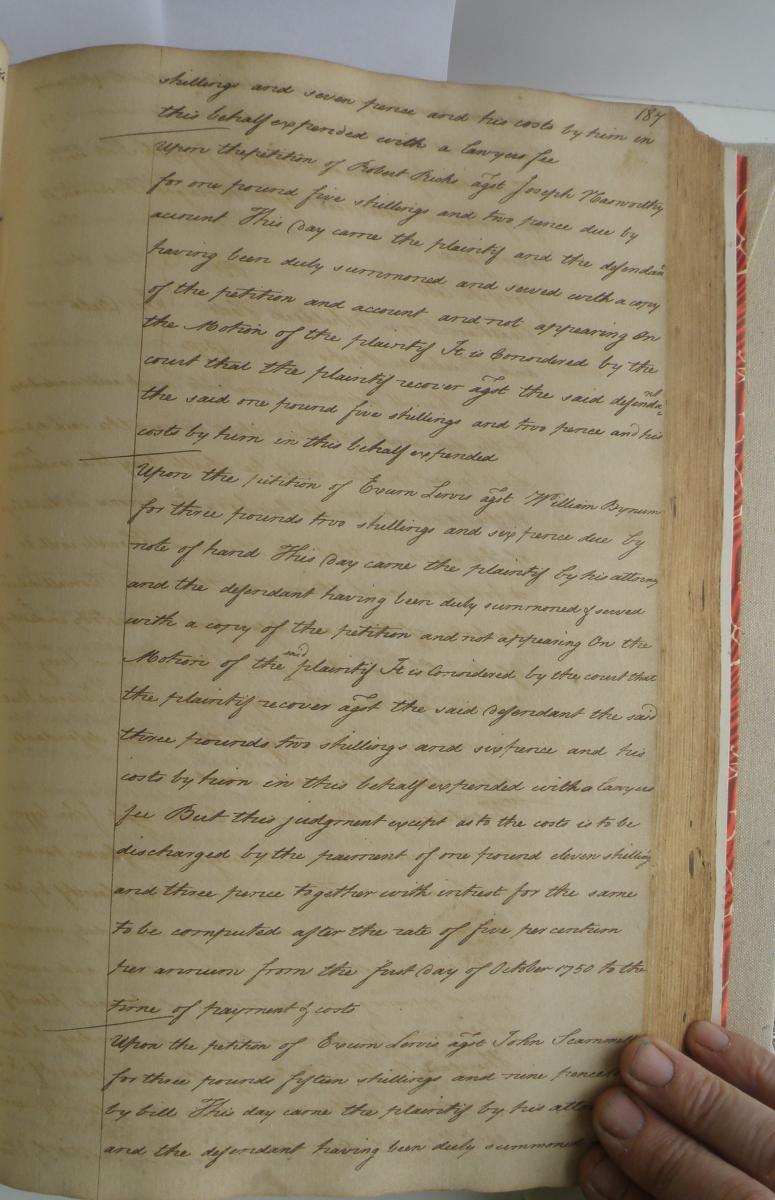 187
shillings and seven pence and his costs by him in
this behalf expended with a lawyers fee
Upon the petition of Robert Ricks agst Joseph Harworthy
for one pound five shillings and two pence due by
acount This Day came the plaintif and the defendant
having been duly summoned and served with a copy
of the petition and account and not appearing On
the Motion of the plaintif It is Considered by the
court that the plaintif recover agst the said defendnt
the said one pound five shillings and two pence and his
costs by him in this behalf expended
Upon the petition of Exum Lewis agst William Bynum
for three pounds two shillings and six pence due by
note of hand This Day came the plaintif by his attorny
and the defendant having been duly summoned & served
with a copy of the petition and not appearing On the
Motion of the said plaintif It is Considered by the court that
the plaintif recover agst the said Defendant the said
three pounds two shillings and sixpence and his
costs by him in this behalf expended with a lawyers
fee But this judgment except as to the costs is to be
discharged by the paiment of one pound eleven shilling
and three pence together with intrest for the same
to be computed after the rate of five per centum
per annum from the first Day of October 1750 to the
time of payment & costs
Upon the petition of Exum Lewis agst John Scammell
for three pounds fifteen shillings and nine pence
by bill This day came the plaintif by his
and the defendant having been duly summoned